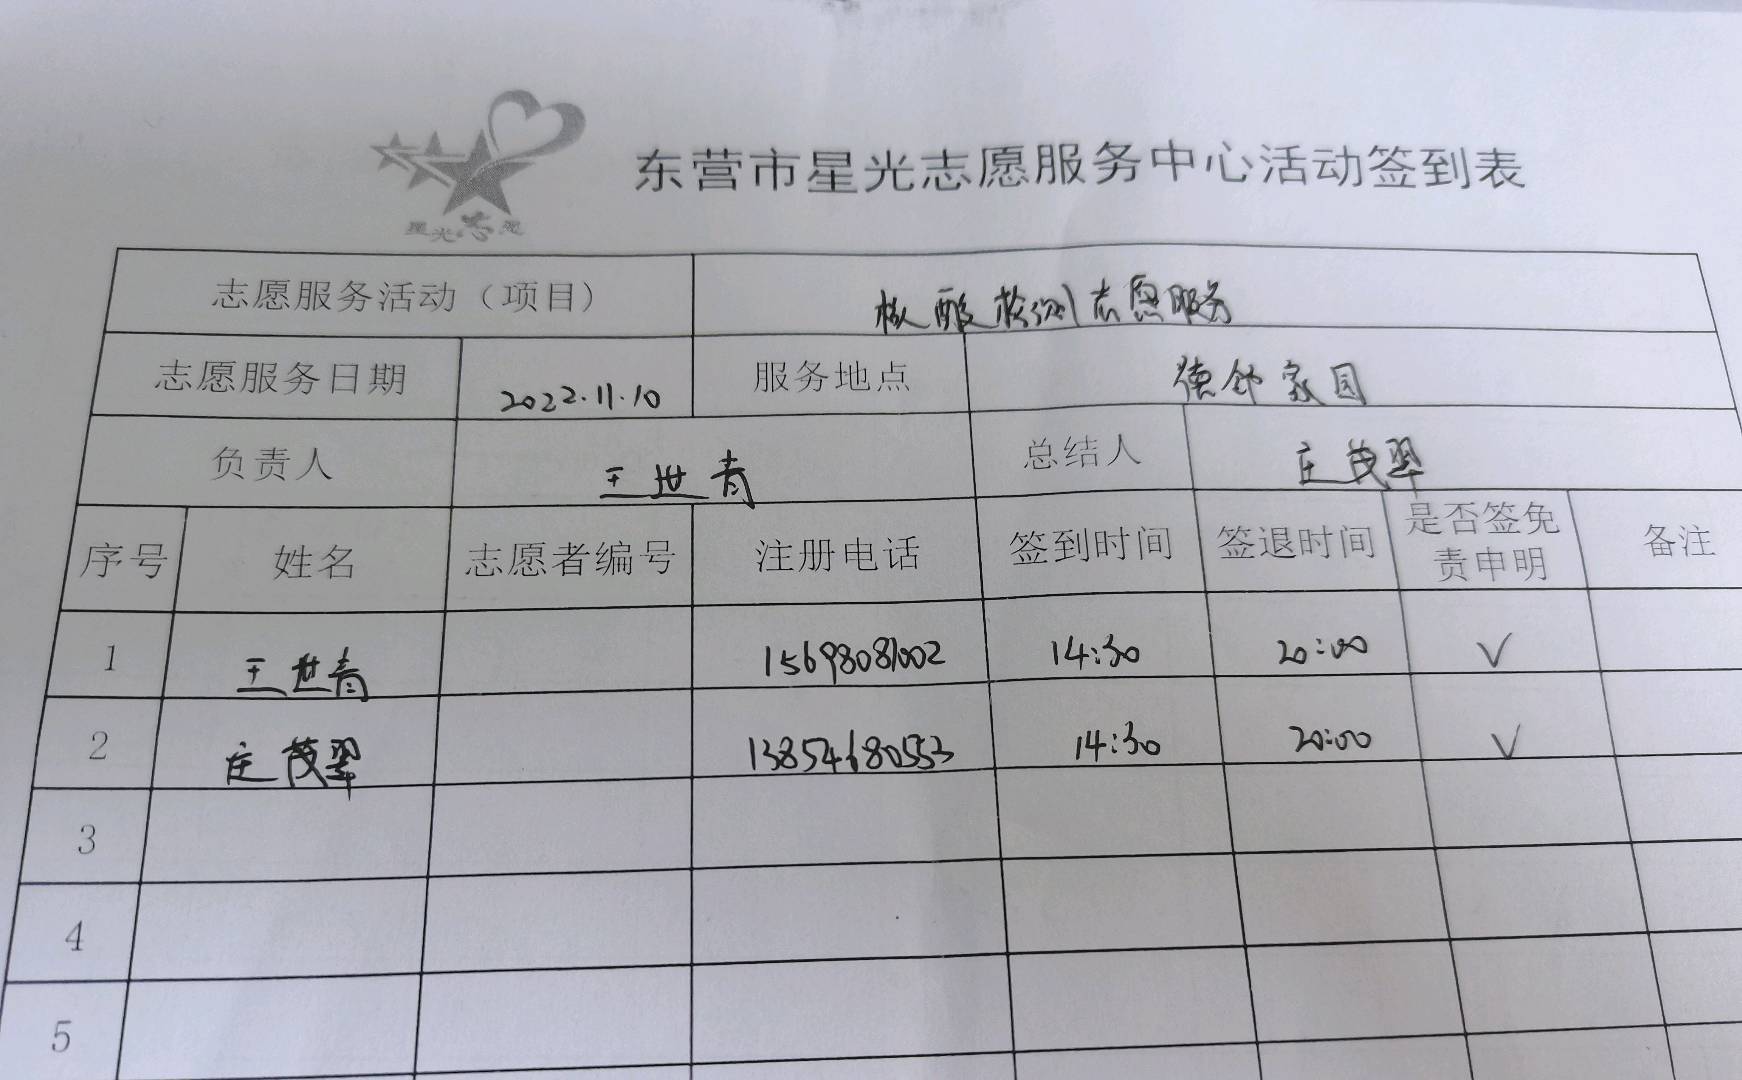 星光志愿
东营市星光志愿服务中心活动签到表
志愿服务活动（项目） 核酸检测志愿服务
志愿服务日期 2022.11.10 服务地点 德邻家园
负责人 王世青 总结人 庄茂翠
序号 姓名 志愿者编号 注册电话 签到时间 签退时间 是否签免责申明 备注
1 王世青 15698081002 14:30 20:00 √
2 庄茂翠 13854680553 14:30 20:00 √
3
4
5